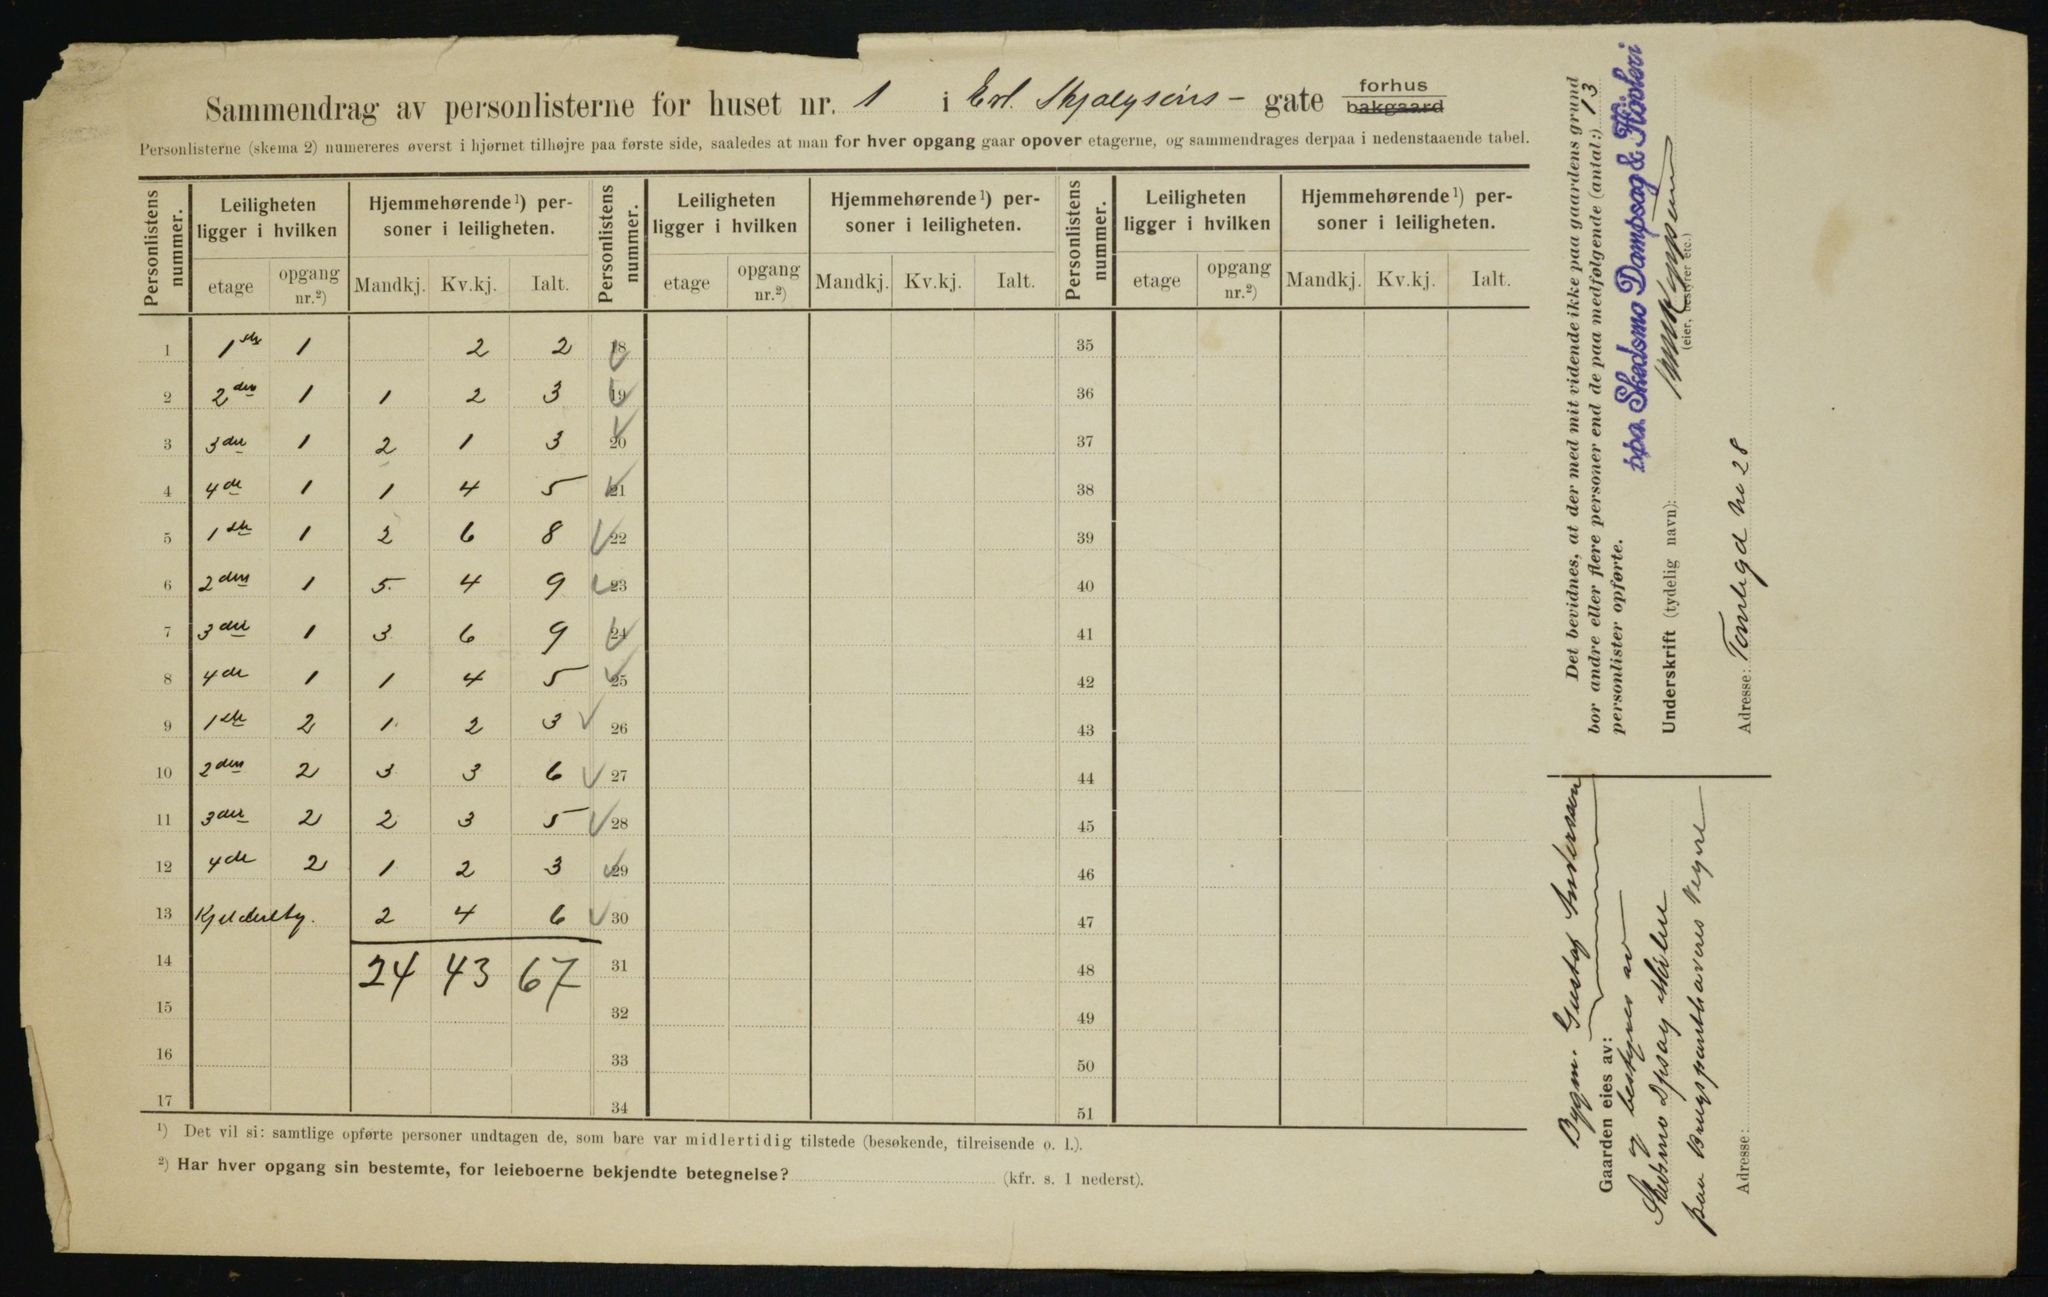 Sammendrag av personlisterne for huset nr. 1 i Erl. Skjalgsöns - gate forhus bakgaard
Personlisterne (skema 2) numereres øverst i hjørnet tilhøjre paa første side, saaledes at man for hver opgang gaar opover etagerne, og sammendrages derpaa i nedenstaaende tabel.
Personlistens nummer. Leiligheten ligger i hvilken Hjemmehørende ¹) personer i leiligheten. Personlistens nummer. Leiligheten ligger i hvilken Hjemmehørende ¹) personer i leiligheten. Personlistens nummer. Leiligheten ligger i hvilken Hjemmehørende ¹) personer i leiligheten.
etage opgang nr.²) Mandkj. Kv.kj. Ialt. etage opgang nr.²) Mandkj. Kv.kj. Ialt. etage opgang nr.²) Mandkj. Kv.kj. Ialt.
1 1ste 1 2 2 18 35
2 2den 1 1 2 3 19 36
3 3die 1 2 1 3 20 37
4 4de 1 1 4 5 21 38
5 1ste 1 2 6 8 22 39
6 2den 1 5 4 9 23 40
7 3die 1 3 6 9 24 41
8 4de 1 1 4 5 25 42
9 1ste 2 1 2 3 26 43
10 2den 2 3 3 6 27 44
11 3die 2 2 3 5 28 45
12 4de 2 1 2 3 29 46
13 Kjelderetg. 2 4 6 30 47
14 24 43 67 31 48
15 32 49
16 33 50
17 34 51
¹) Det vil si: samtlige opførte personer undtagen de, som bare var midlertidig tilstede (besøkende, tilreisende o. l.).
²) Har hver opgang sin bestemte, for leieboerne bekjendte betegnelse? (kfr. s. 1 nederst).
Det bevidnes, at der med mit vidende ikke paa gaardens grund
bor andre eller flere personer end de paa medfølgende (antal:) 13
personlister opførte.
ppa. Skedsmo Dampsag & Høvleri
Underskrift (tydelig navn):
(eier, bestyrer etc.)
Adresse: Tomtegd No 28
Bygm. Gustaf Andersson
Gaarden eies av:
og bestyres av
Skedsmo Dpsag
paa Brugspanthaveres Vegne
Adresse: